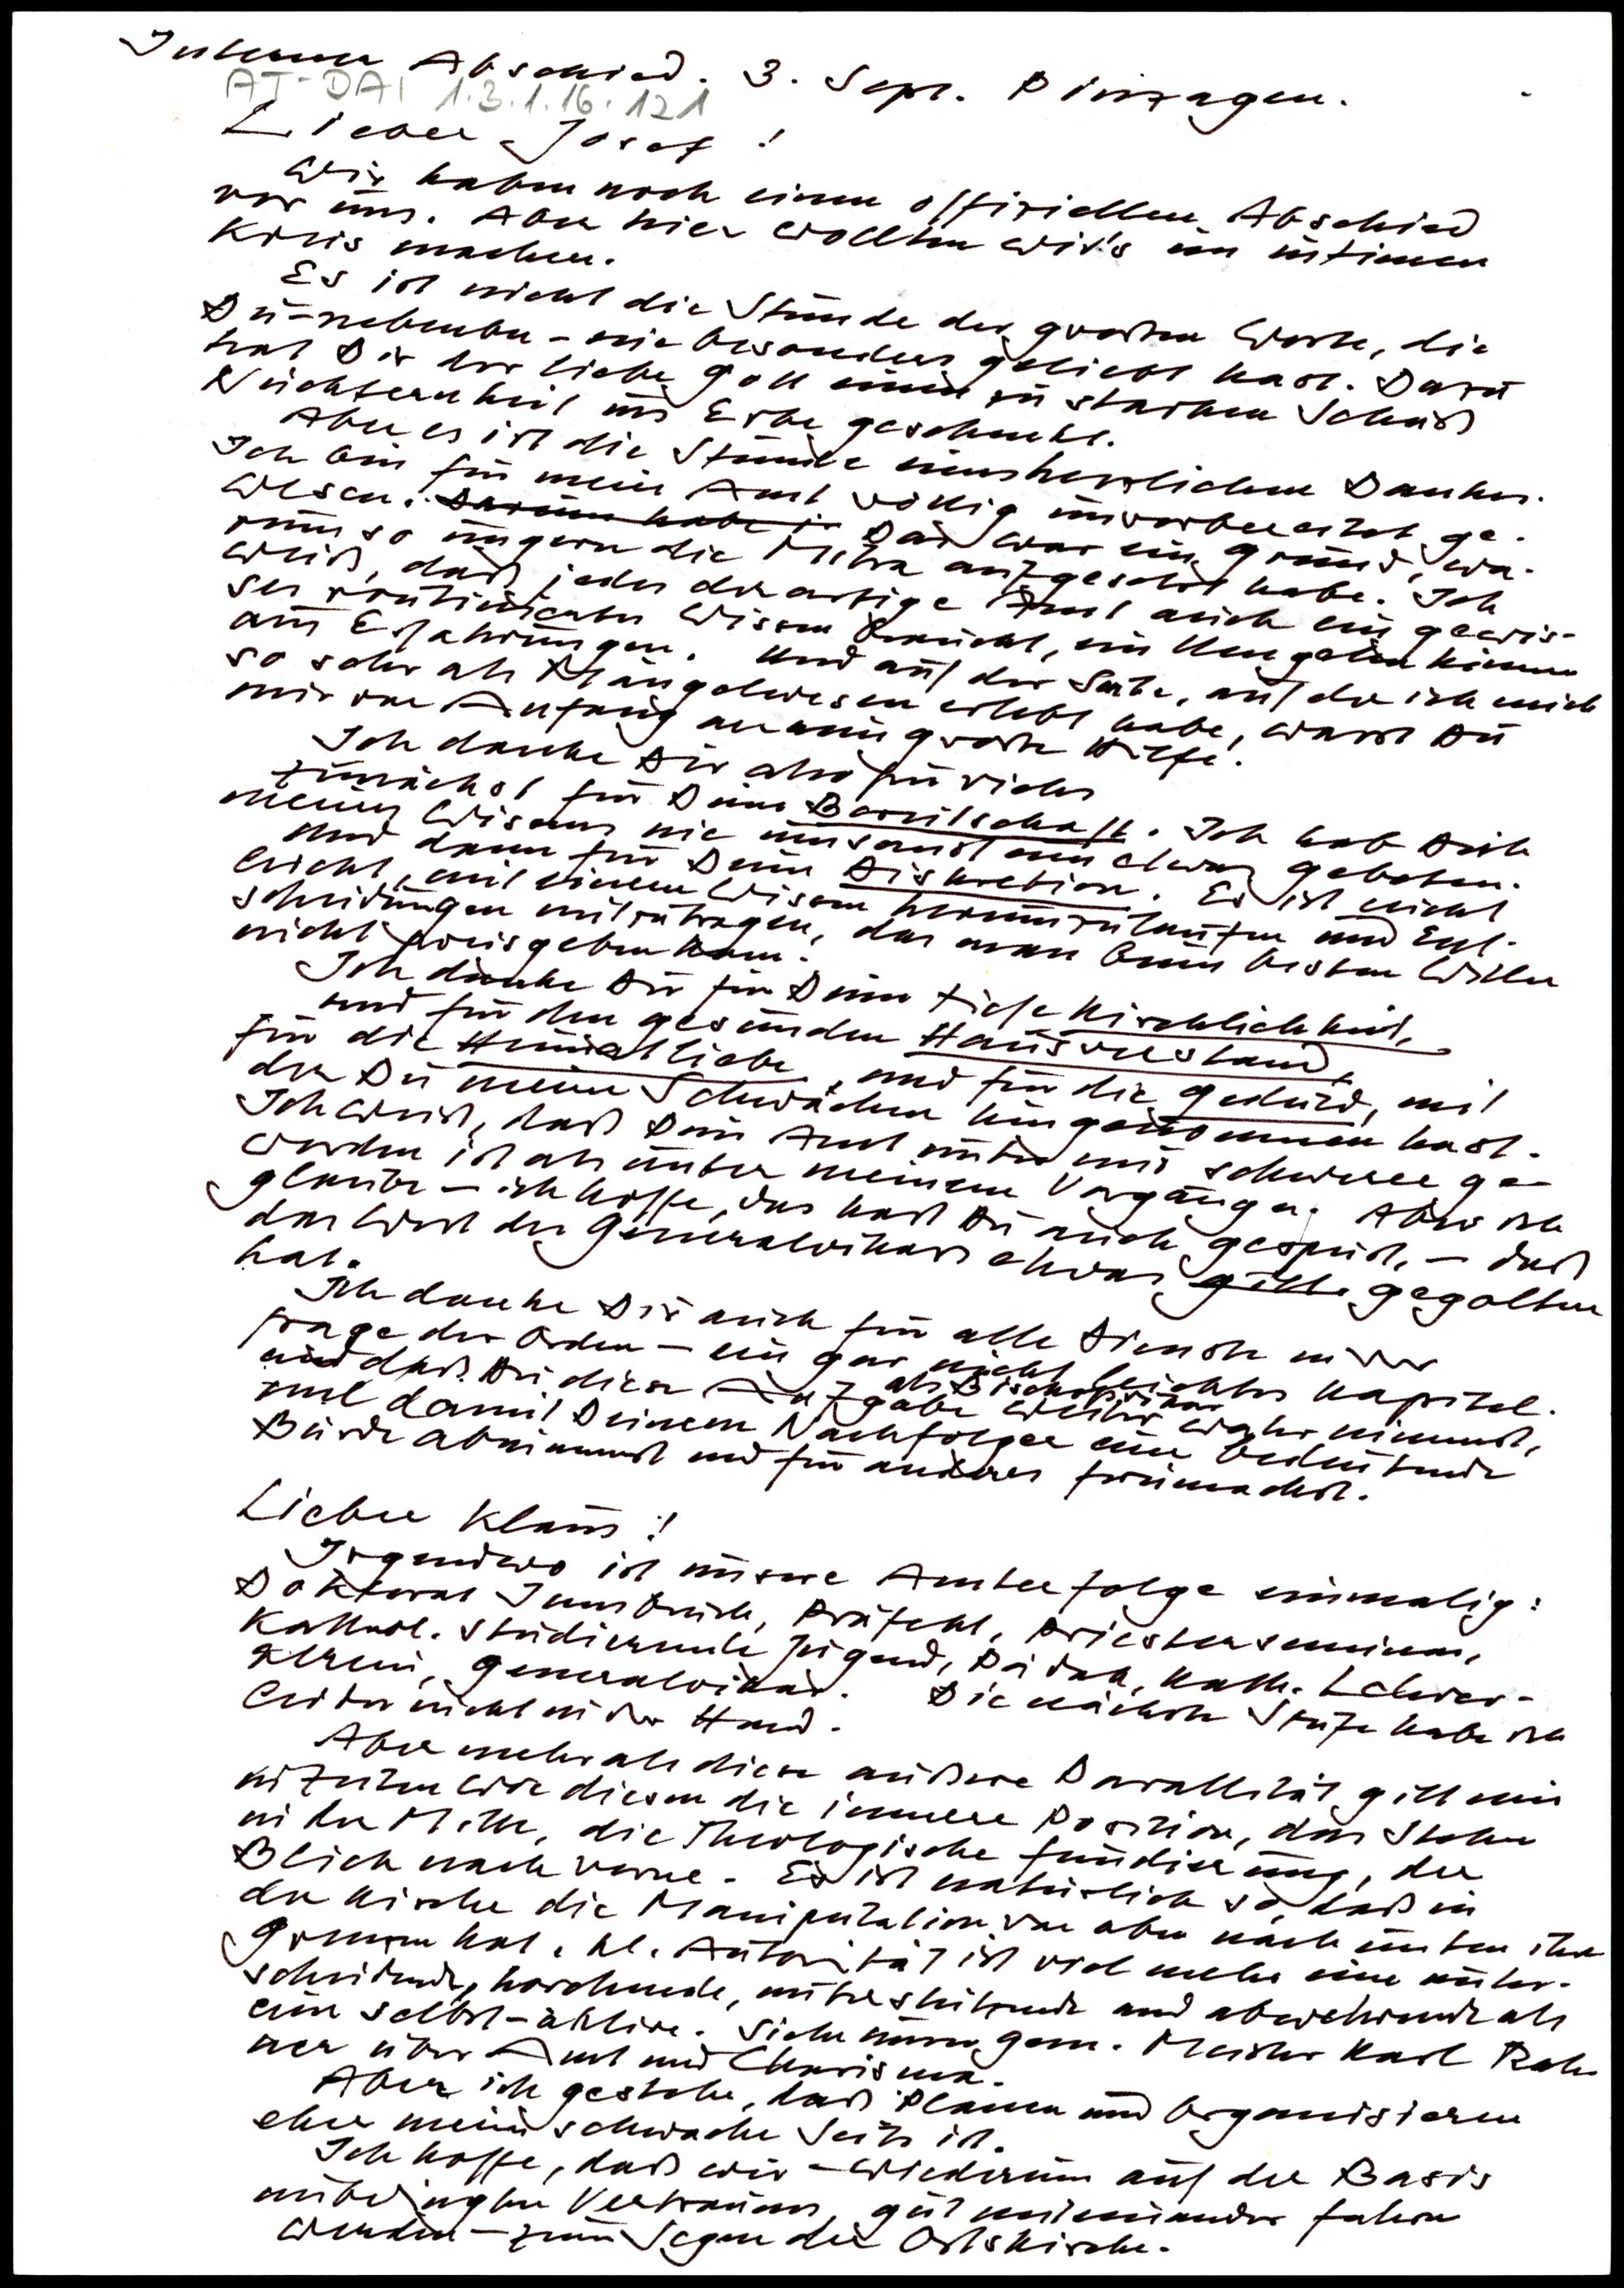 Interner Abschied. 3. Sept. Pinzagen.
AT-DAI 1.3.1.16.121
Lieber Josef!
Wir haben noch einen offiziellen Abschied
vor uns. Aber hier wollten wir's im intimen
Kreis machen.
Es ist nicht die Stunde der großen Worte, die
Du - nebenbei - nie besonders geliebt hast. Dazu
hat Dir der liebe Gott einen zu starken Schuß
Nüchternheit ins Erbe geschenkt.
Aber es ist die Stunde eines herzlichen Dankes.
Ich bin für mein Amt völlig unvorbereitet ge-
wesen. Darum habe i Das war ein Grund, wa-
rum so ungern die Mitra aufgesetzt habe. Ich
weiß, daß jedes derartige Amt auch ein gewis-
ses routiniertes Wissen braucht, ein Umgehen können
aus Erfahrungen. Und auf der Seite, auf der ich mich
so sehr als Mängelwesen erlebt habe, warst Du
mir von Anfang an eine große Hilfe.
Ich danke Dir also für vieles
zunächst für Deine Bereitschaft. Ich hab Dich
meines Wissens nie umsonst um etwas gebeten.
Und dann für Deine Diskretion. Es ist nicht
leicht, mit einem Wissen herumzulaufen und Ent-
scheidungen mitzutragen, das man beim besten Willen
nicht preisgeben kann.
Ich danke Dir für Deine tiefe Kirchlichkeit,
und für den gesunden Hausverstand,
für die Heimatliebe, und für die Geduld, mit
der Du meine Schwächen hingenommen hast.
Ich weiß, daß Dein Amt unter mir schwerer ge-
worden ist als unter meinem Vorgänger. Aber ich
glaube - ich hoffe, das hast Du auch gespürt, - daß
das Wort des Generalvikars etwas gilt gegolten
hat.
Ich danke Dir auch für alle Dienste in der
Frage der Orden - ein gar nicht leichtes Kapitel.
und daß Du diese Aufgabe als Bischofsvikar weiter wahrnimmst,
und damit Deinem Nachfolger eine bedeutende
Bürde abnimmst und für anderes freimachst.
Lieber Klaus!
Irgendwo ist unsere Ämterfolge einmalig:
Doktorat Innsbruck, Präfekt, Priesterseminar,
Kathol. Studierende Jugend, Pädak, Kath. Lehrer-
verein, Generalvikar. Die nächste Stufe habe ich
leider nicht in der Hand.
Aber mehr als diese äußere Parallelität gilt mir
in Zeiten wie diesen die innere Position, das Stehen
in der Mitte, die theologische Fundierung, der
Blick nach vorne. Es ist natürlich so, daß in
der Kirche die Manipulation von oben nach unten ihre
Grenzen hat. Hl. Autorität ist viel mehr eine unter-
scheidende, horchende, unterstützende und abwehrende als
eine selbst-aktive. Siehe unseren gem. Meister Karl Rah-
ner über Amt und Charisma.
Aber ich gestehe, daß Planen und Organisieren
eher meine schwache Seite ist.
Ich hoffe, daß wir - wiederum auf der Basis
unbedingten Vertrauens, gut miteinander fahren
werden - zum Segen der Ortskirche.